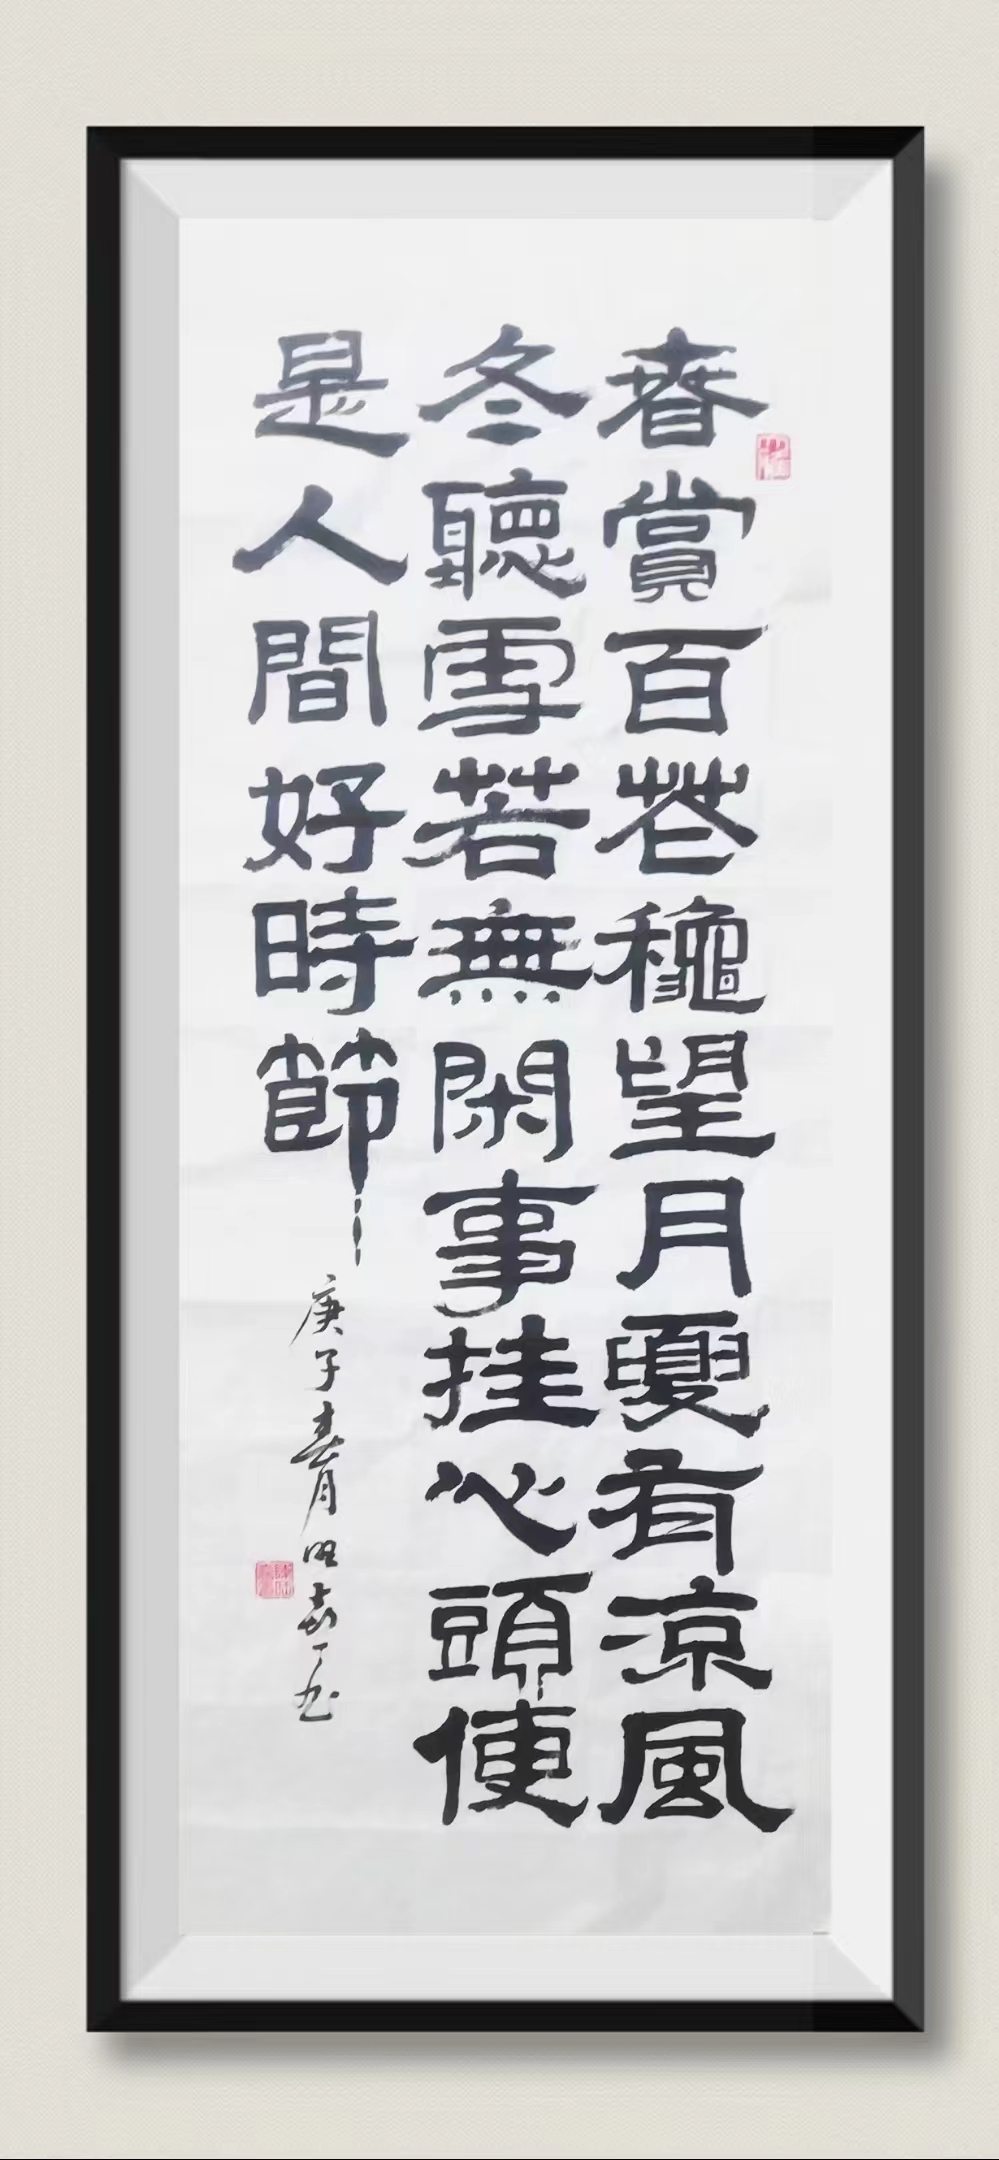 春賞百花穐望月夏有涼風
冬聽雪若無閑事挂心頭便
是人間好時節
庚子春月